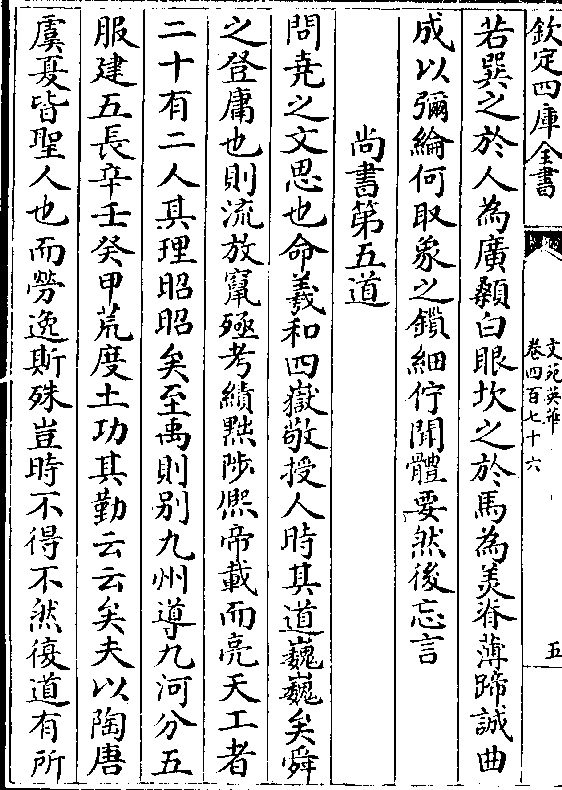 欽定四庫全書
文苑英華
卷四百七十六
五
若巽之於人為廣顙白眼坎之於馬為美脊薄蹄誠曲
成以彌綸何取象之鎖細佇聞體要然後忘言
尚書第五道
問堯之文思也命羲和四嶽敬授人時其道巍巍矣舜
之登庸也則流放竄殛考績黜陟熈帝載而亮天工者
二十有二人其理昭昭矣至禹則别九州導九河分五
服建五長辛壬癸甲荒度土功其勤云云矣夫以陶唐
虞夏皆聖人也而勞逸斯殊豈時不得不然復道有所